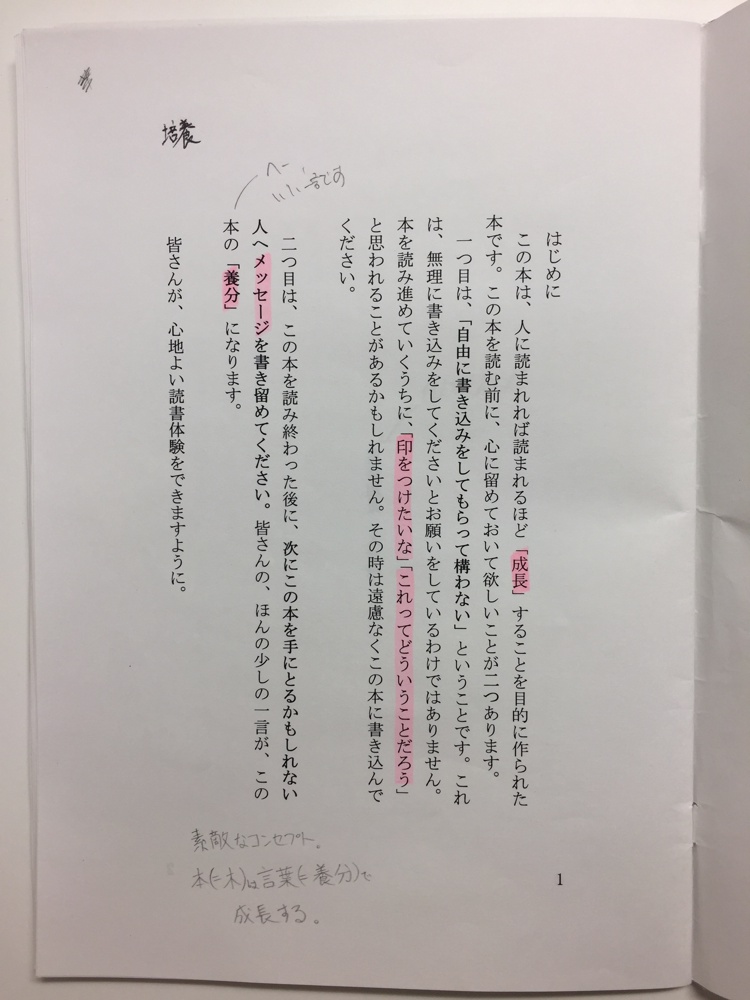 はじめに
この本は、人に読まれれば読まれるほど「成長」することを目的に作られた
本です。この本を読む前に、心に留めておいて欲しいことが二つあります。
一つ目は、「自由に書き込みをしてもらって構わない」ということです。これ
は、無理に書き込みをしてくださいとお願いをしているわけではありません。
本を読み進めていくうちに、「印をつけたいな」「これってどういうことだろう」
と思われることがあるかもしれません。その時は遠慮なくこの本に書き込んで
ください。
二つ目は、この本を読み終わった後に、次にこの本を手にとるかもしれない
人へメッセージを書き留めてください。皆さんの、ほんの少しの一言が、この
本の「養分」になります。
皆さんが、心地よい読書体験をできますように。
培養
へー
素敵なコンセプト。
本(=木)は言葉(=養分)で
成長する。
1